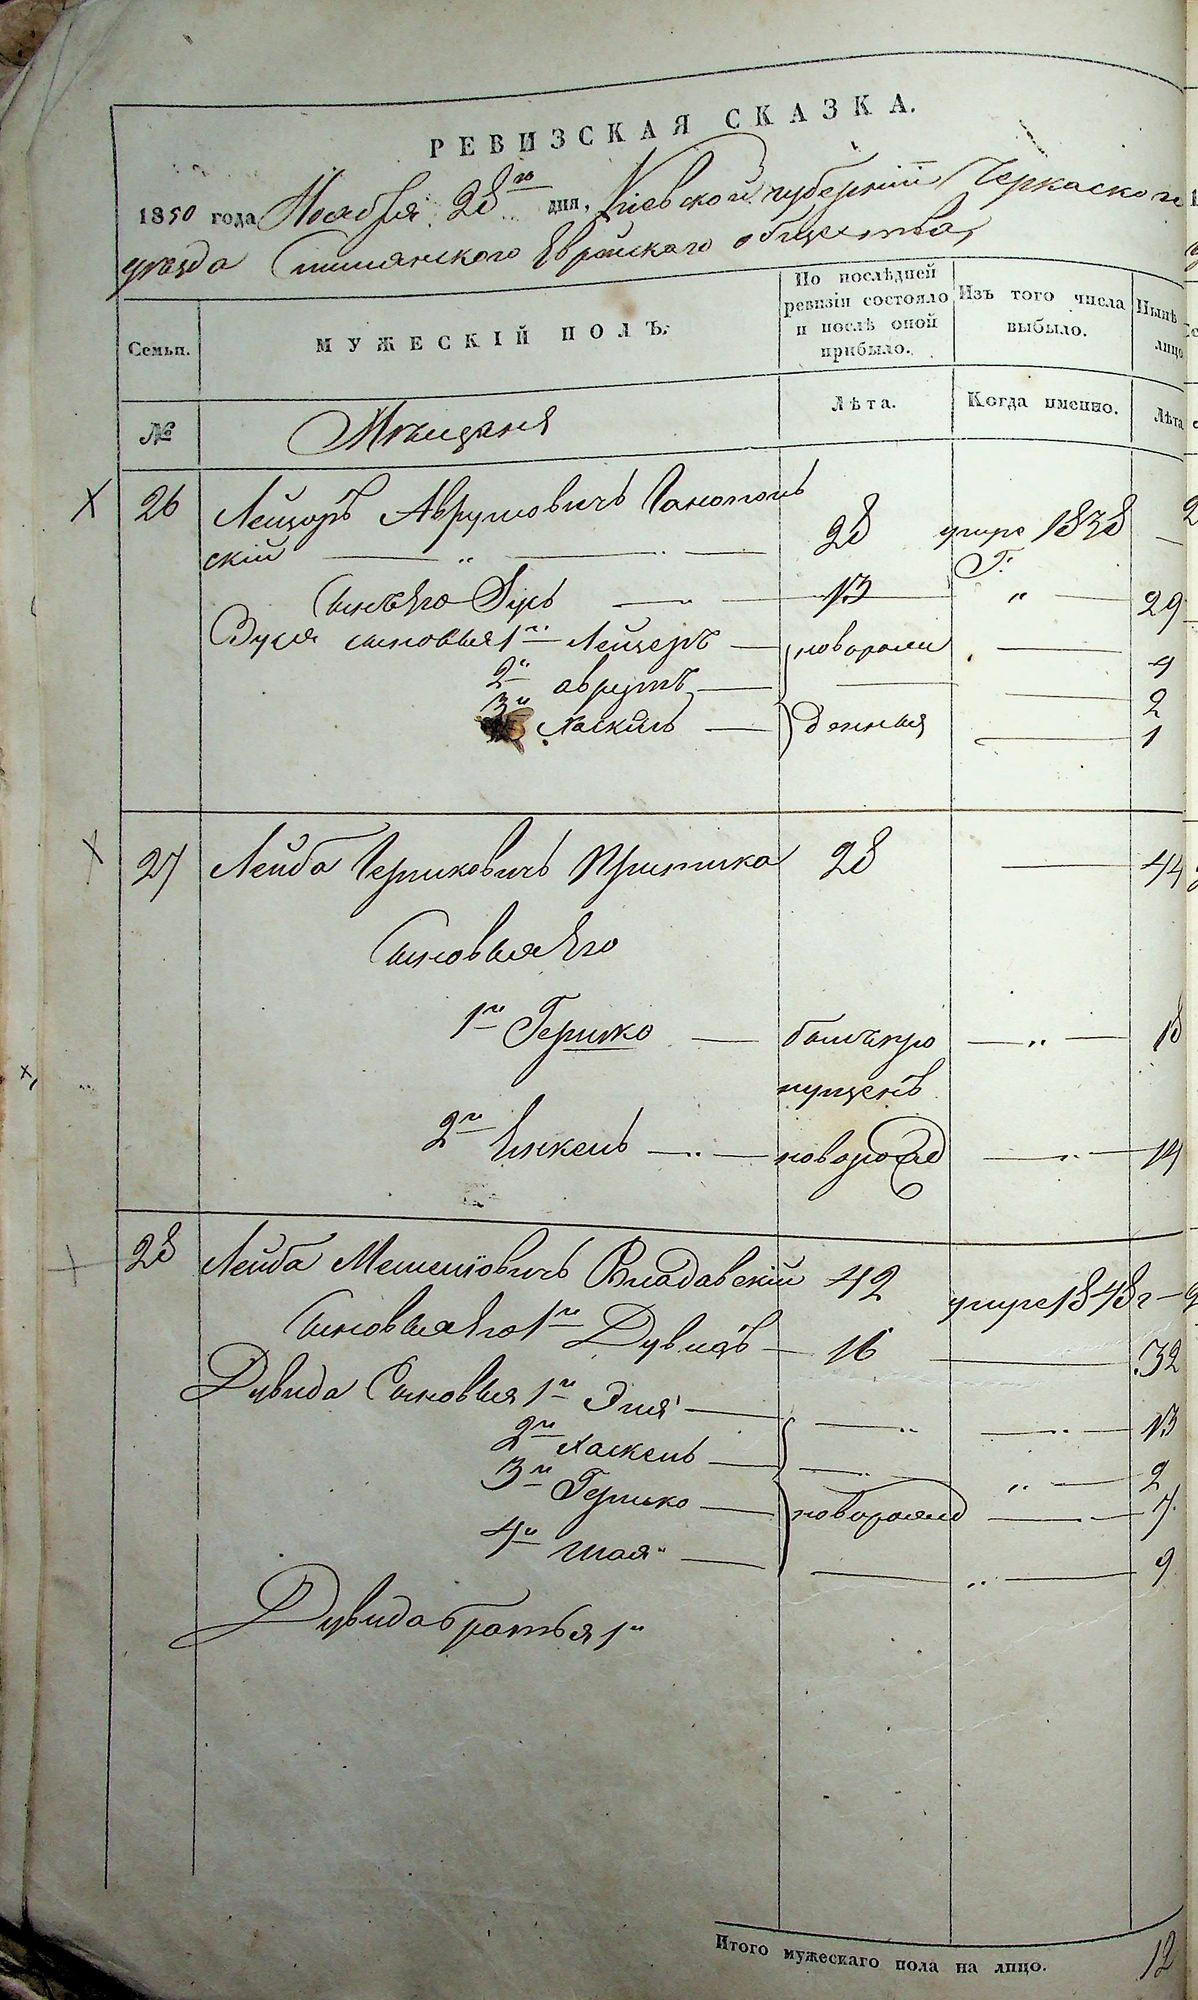 РЕВИЗСКАЯ СКАЗКА.
1850 года Ноября 28го дня, Киевской губернии Черкаского
уезда Смилянского Еврейскаго общества,
Семьи. МУЖЕСКІЙ ПОЛЪ. По послѣдней ревизіи состояло и послѣ оной прибыло. Изъ того числа выбыло. Нынѣ лицо
№ Мѣщаня Лѣта. Когда именно. Лѣта
26 Лейзоръ Аврумовичъ
скій 28 умре 1838 г.
Сынъ Его 13 " 29
сыновья 1й Лейзеръ новорож 4
2й Аврумъ 2
3й Хаскель денныя 1
27 Лейба Гершковичъ 28 44
Сыновья Его
1й Гершко былъ про 18
пущенъ
2й новорожд 14
28 Лейба Владавскій 42 умре 1848 г
Сыновья Его 1й Дувидъ 16 32
Дувида Сыновья 1й Эля 13
2й Хаскель 2
3й Гершко новорожд 7
4й Шая 9
Дувида братья 1й
Итого мужескаго пола на лицо. 12